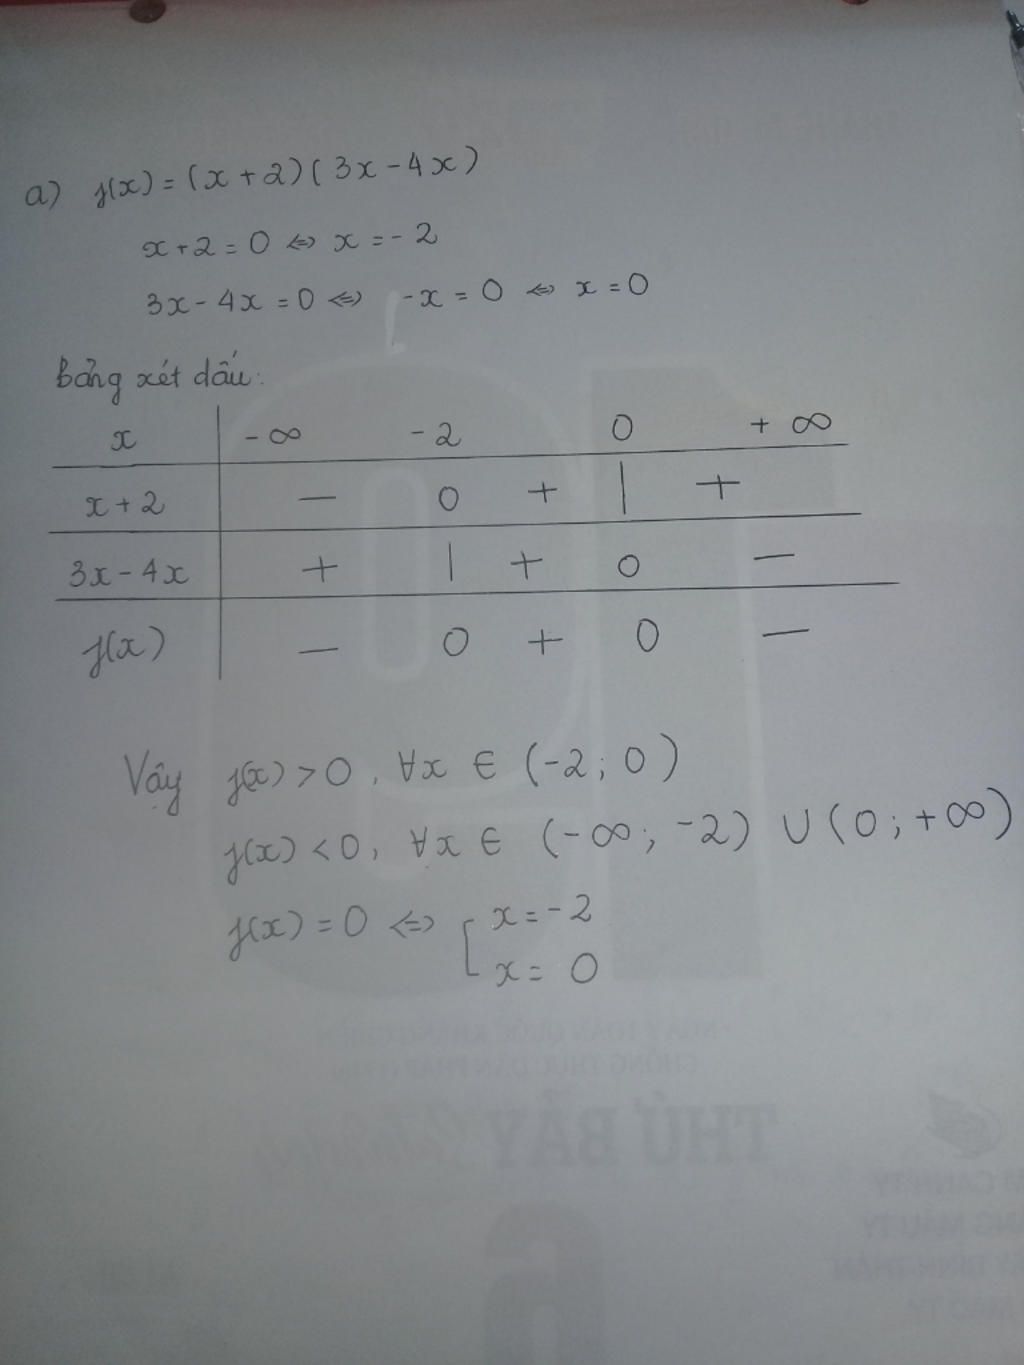 a) f(x) = (x + 2)(3x - 4x)
x + 2 = 0 ⇔ x = -2
3x - 4x = 0 ⇔ -x = 0 ⇔ x = 0
Bảng xét dấu:
x | -∞ -2 0 +∞
x + 2 | — 0 + | +
3x - 4x | + | + 0 —
f(x) | — 0 + 0 —
Vậy f(x) > 0, ∀x ∈ (-2; 0)
f(x) < 0, ∀x ∈ (-∞; -2) ∪ (0; +∞)
f(x) = 0 ⇔ [ x = -2
x = 0
THỨ BẢY
6